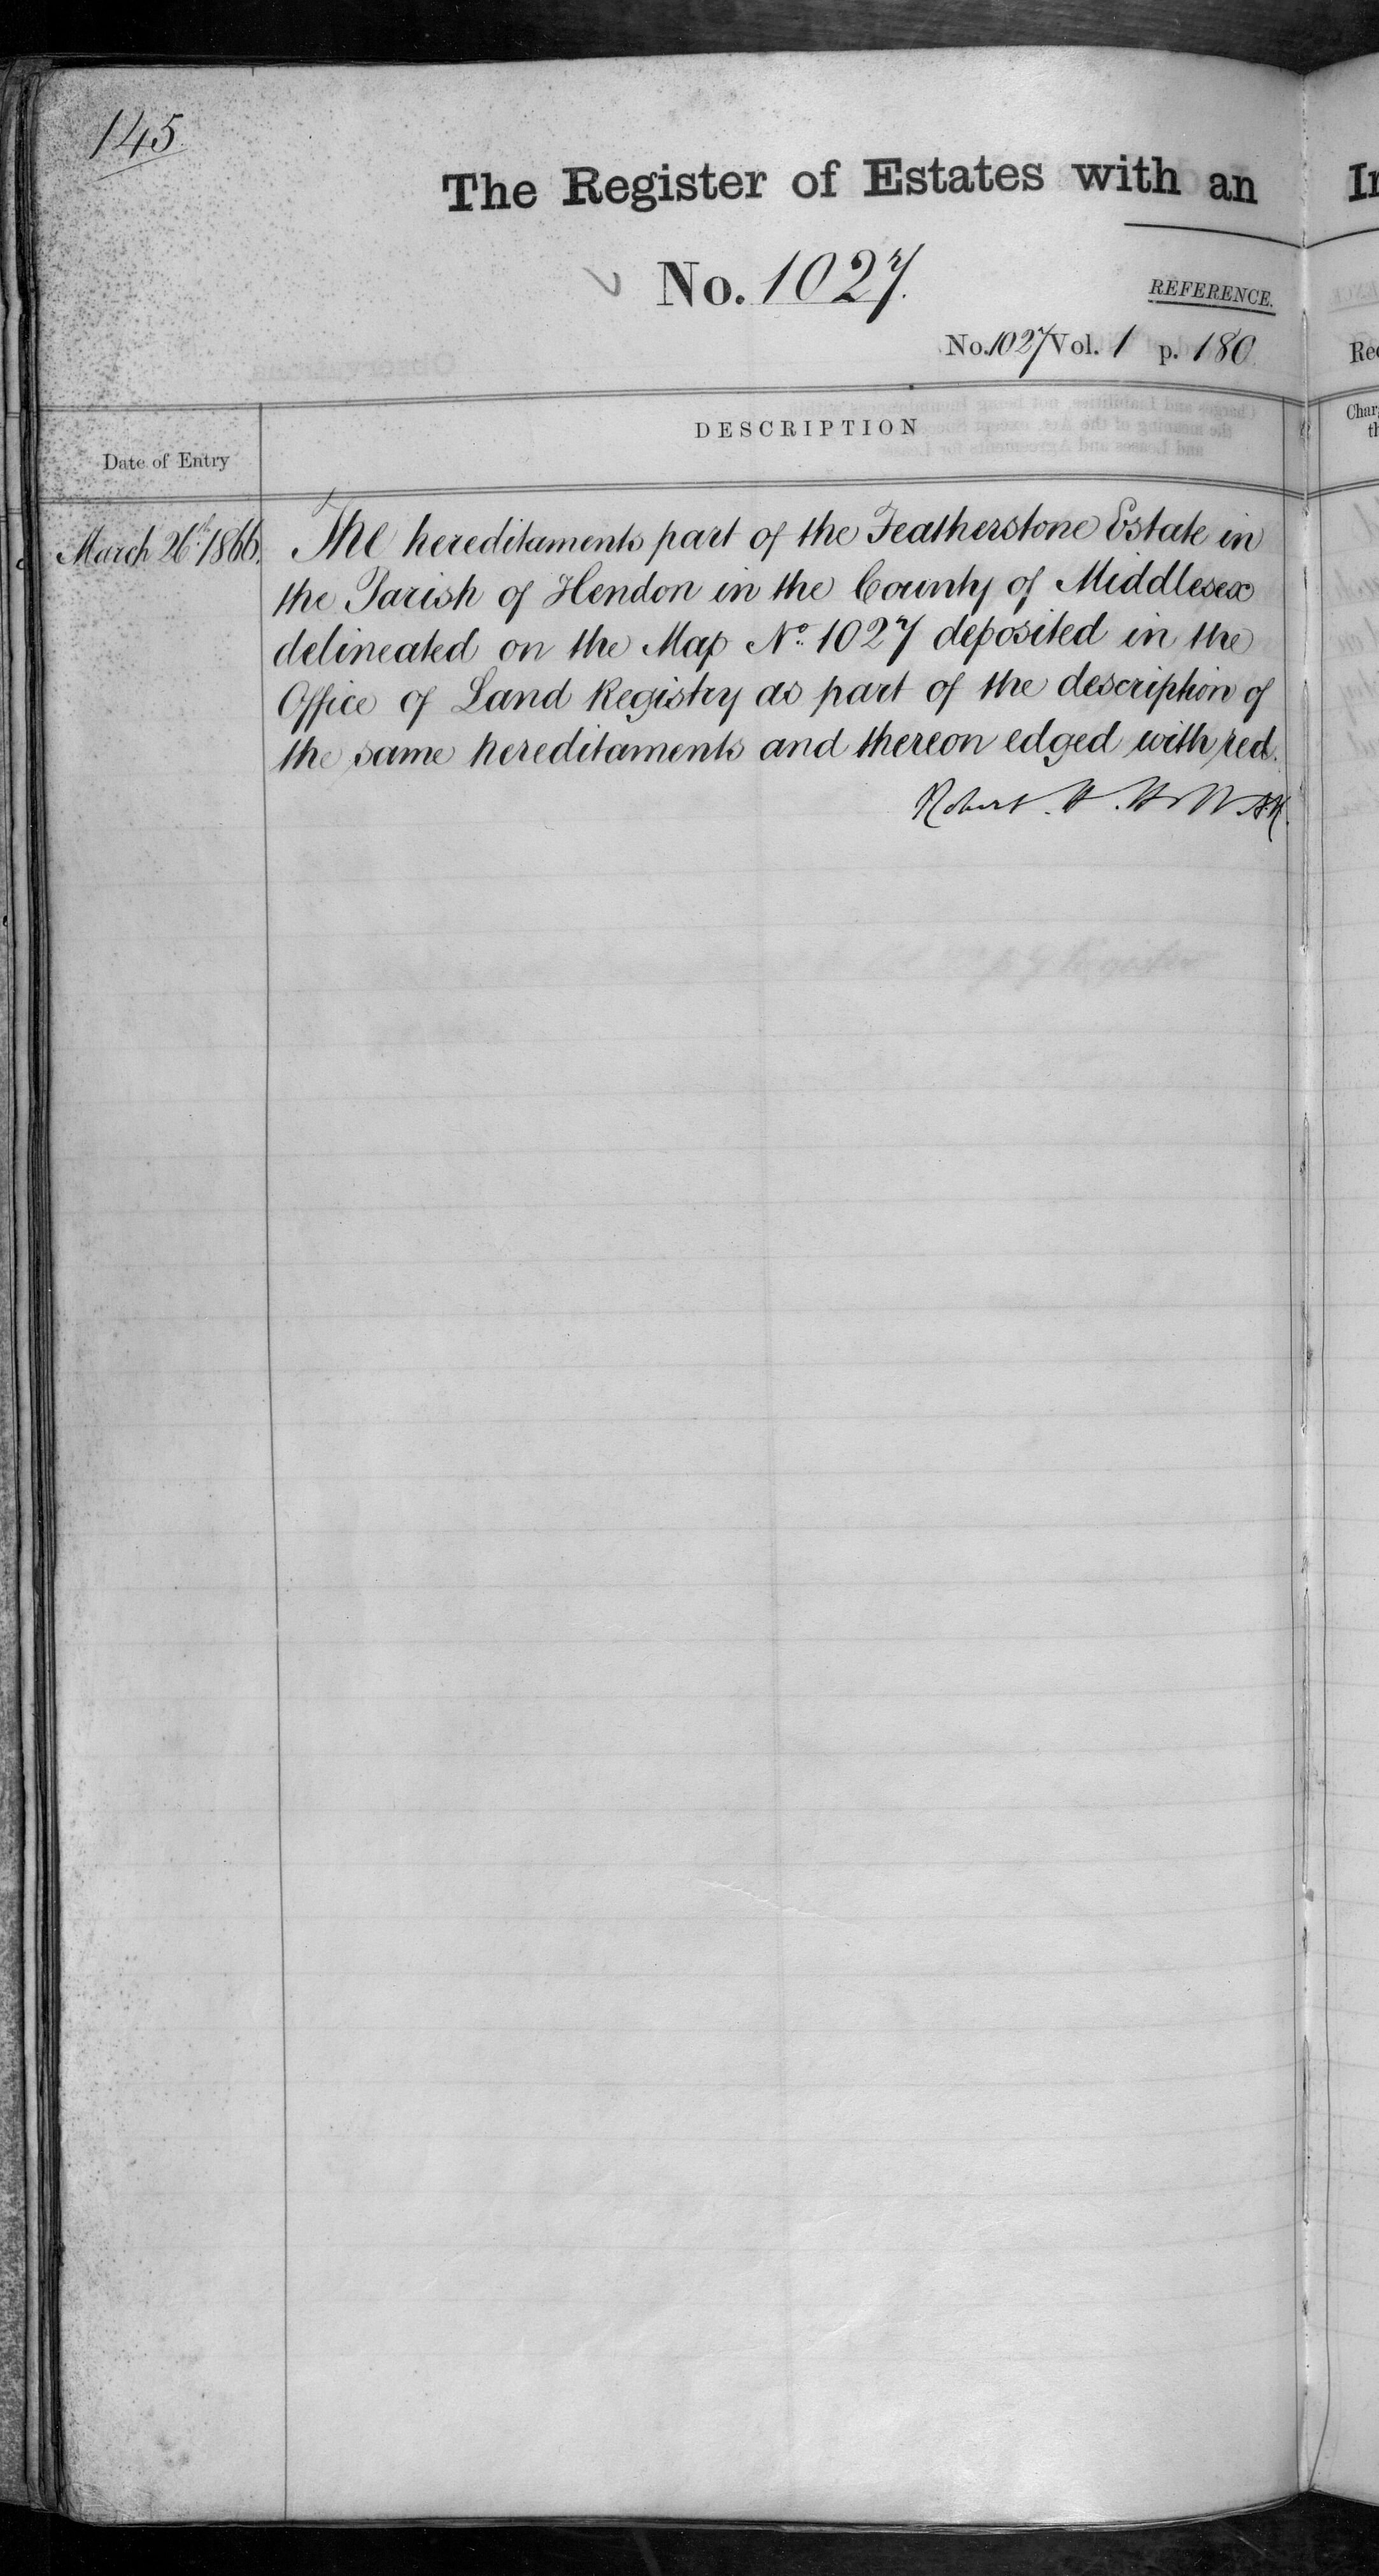 145.
The Register of Estates with an
No. 1027.
REFERENCE.
No. 1027 Vol. 1 p. 180.
Date of Entry
DESCRIPTION
March 26th 1866.
The hereditaments part of the Featherstone Estate in
the Parish of Hendon in the County of Middlesex
delineated on the Map No. 1027 deposited in the
Office of Land Registry as part of the description of
the same hereditaments and thereon edged with red.
Robert. H. Holt